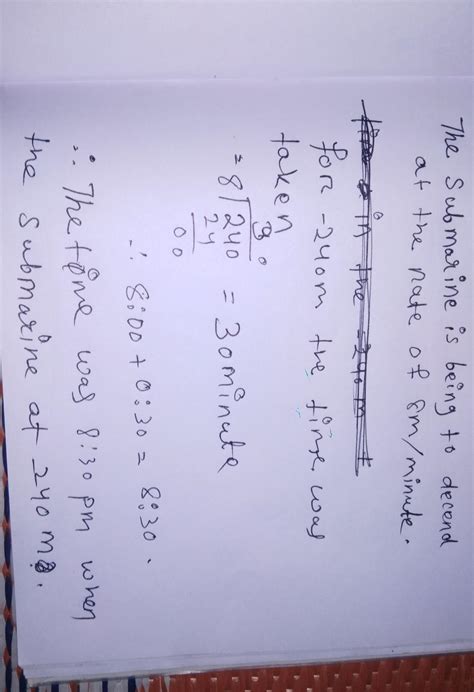 The submarine is being to decend
at the rate of 8m/minute.
in the -240m
for -240m the time was
taken
30
= 8)240 = 30minute
24
00
∴ 8:00 + 0:30 = 8:30.
∴ The time was 8:30 pm when
the submarine at -240 m.